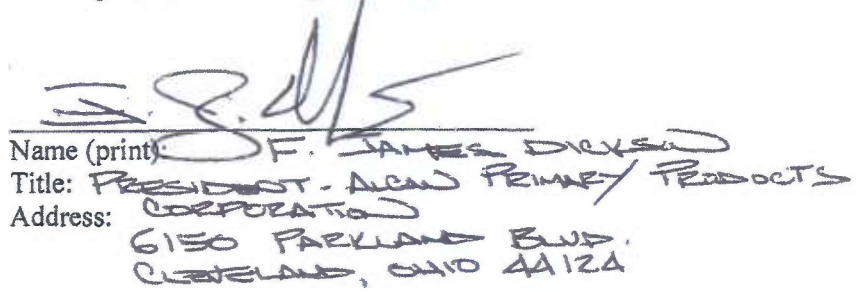 Name (print): F. JAMES DICKSON
Title: PRESIDENT - ALCAN PRIMARY PRODUCTS
Address: CORPORATION
6150 PARKLAND BLVD.
CLEVELAND, OHIO 44124